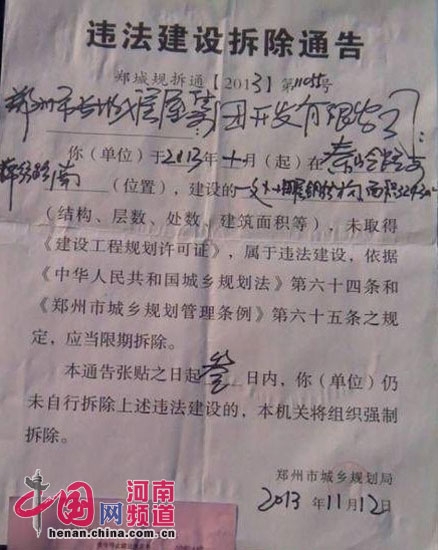 违法建设拆除通告
郑城规拆通【2013】第11055号
郑州市长城房屋集团开发有限公司：
你（单位）于2013年十月（起）在秦岭路
路南（位置），建设的
（结构、层数、处数、建筑面积等），未取得
《建设工程规划许可证》，属于违法建设，依据
《中华人民共和国城乡规划法》第六十四条和
《郑州市城乡规划管理条例》第六十五条之规
定，应当限期拆除。
本通告张贴之日起叁日内，你（单位）仍
未自行拆除上述违法建设的，本机关将组织强制
拆除。
郑州市城乡规划局
2013年11月12日
中国网河南频道
henan.china.com.cn